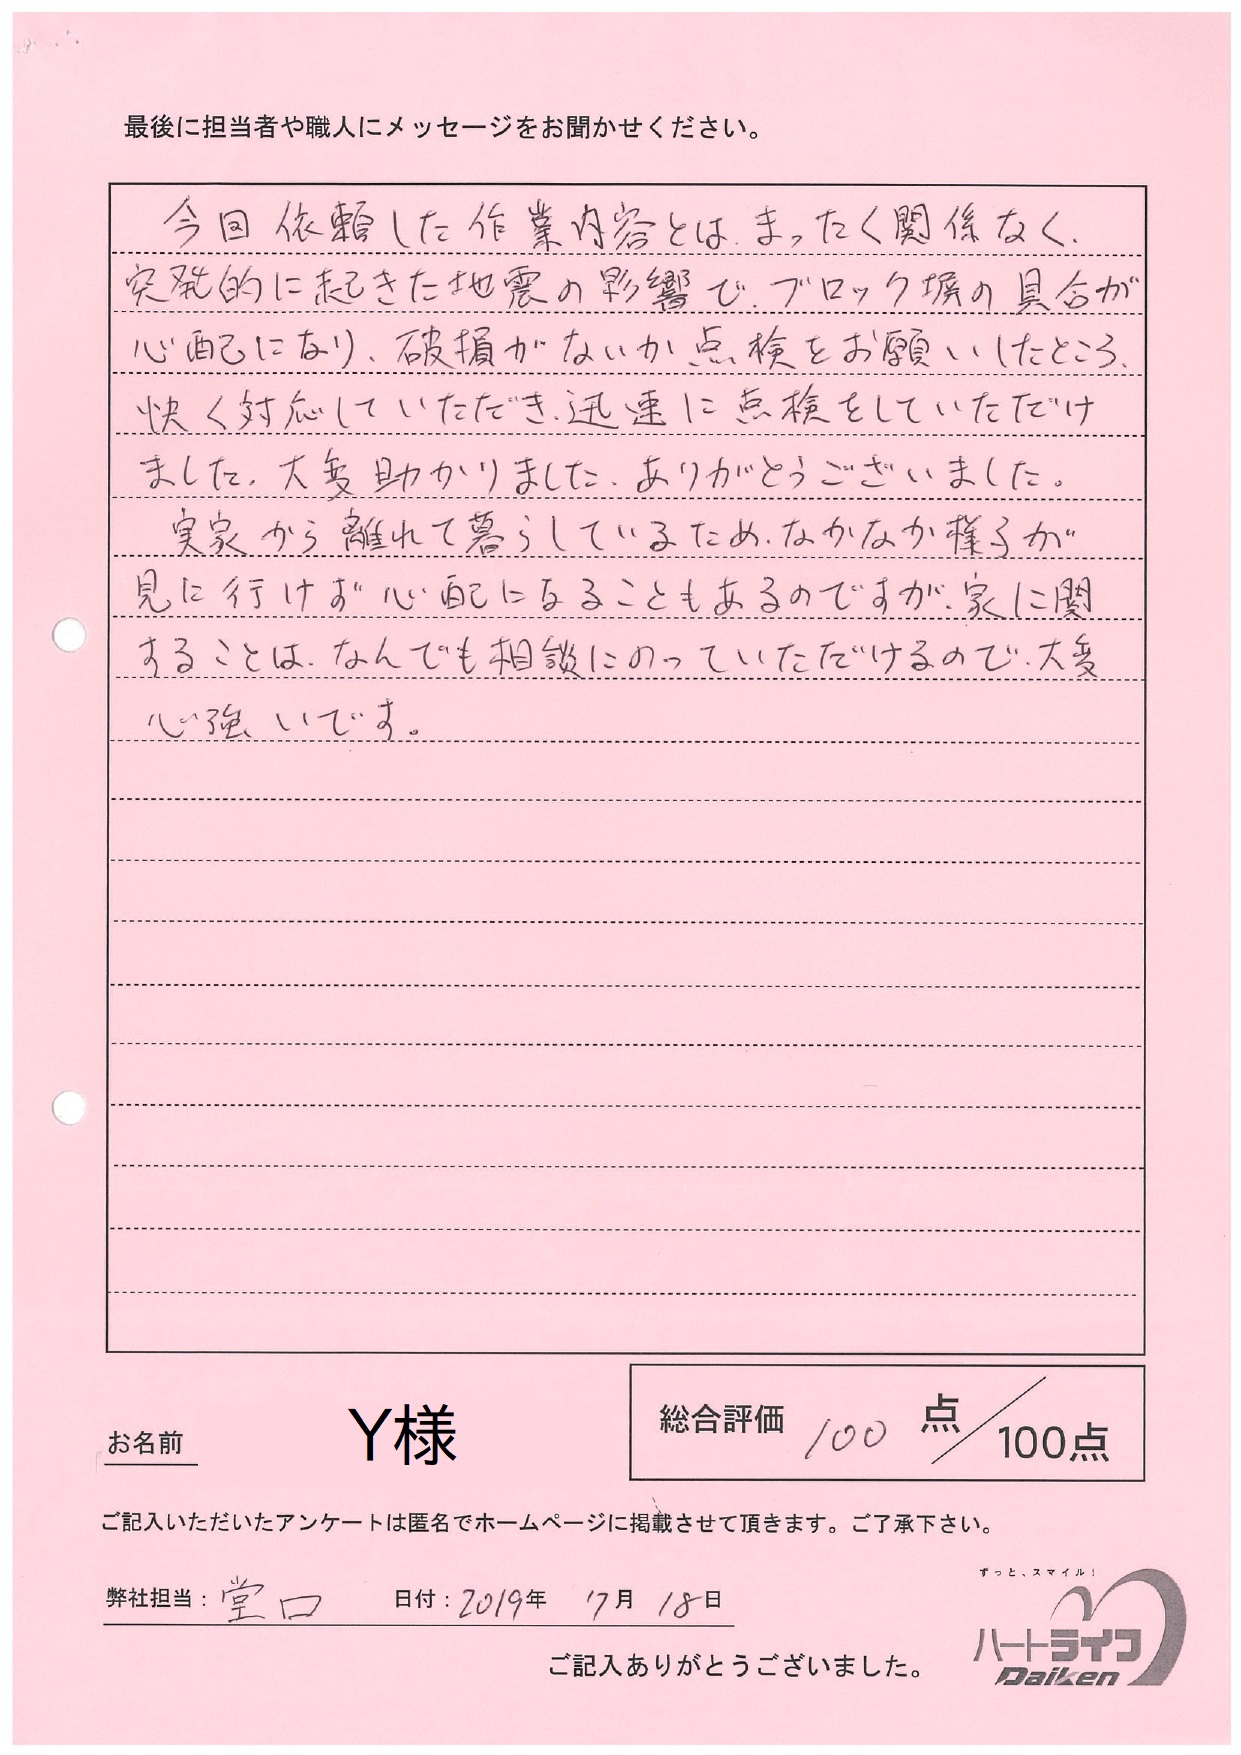 最後に担当者や職人にメッセージをお聞かせください。
今回依頼した作業内容とは、まったく関係なく、
突発的に起きた地震の影響で、ブロック塀の具合が
心配になり、破損がないか点検をお願いしたところ、
快く対応していただき、迅速に点検をしていただけ
ました。大変助かりました。ありがとうございました。
実家から離れて暮らしているため、なかなか様子が
見に行けず心配になることもあるのですが、家に関
することは、なんでも相談にのっていただけるので、大変
心強いです。
お名前 Y様
総合評価 100 点／100点
ご記入いただいたアンケートは匿名でホームページに掲載させて頂きます。ご了承下さい。
弊社担当：堂口 日付：2019年 7月 18日
ずっと、スマイル！
ハートライフ
Daiken
ご記入ありがとうございました。